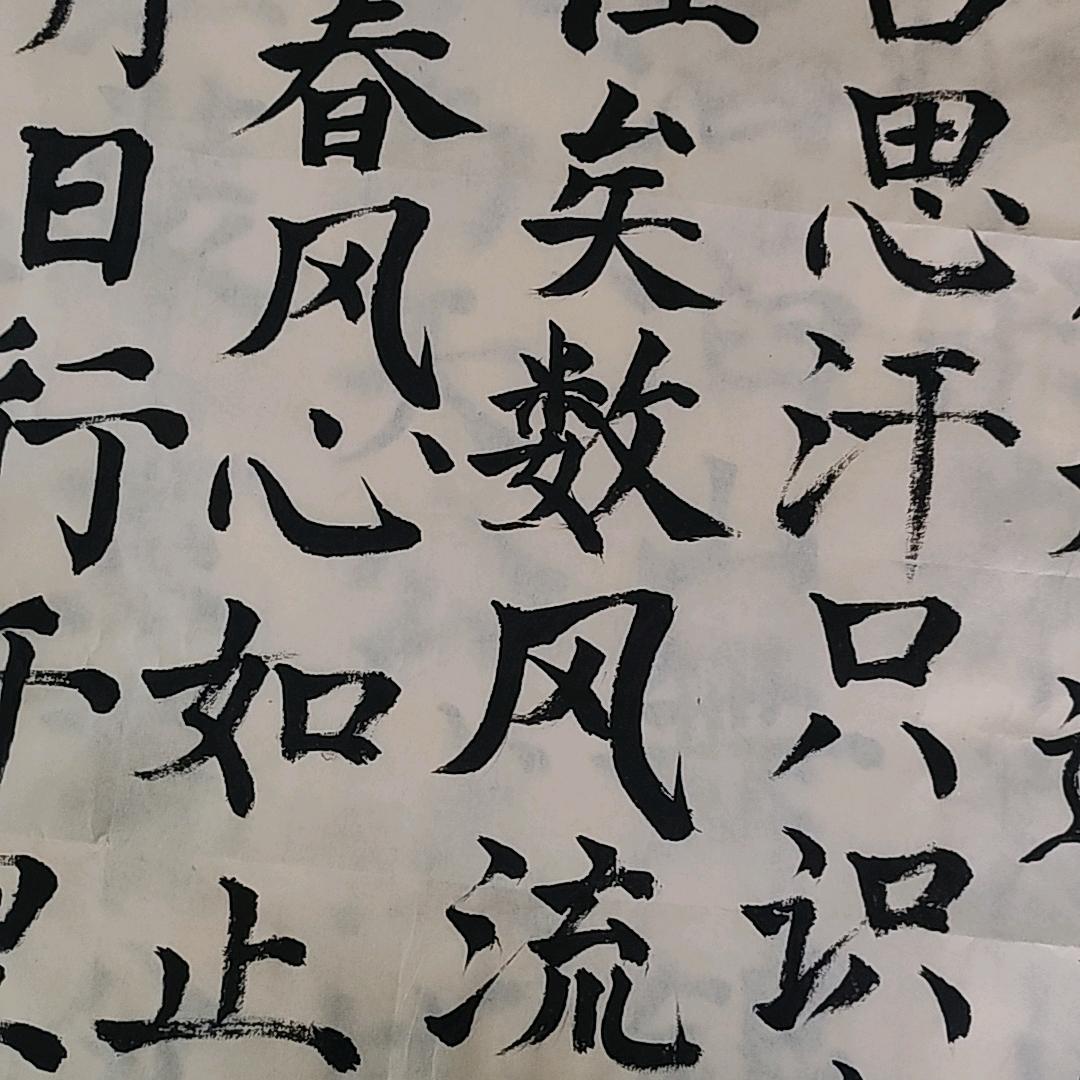 思汗只识
往矣数风流
春风心如止
日行千里